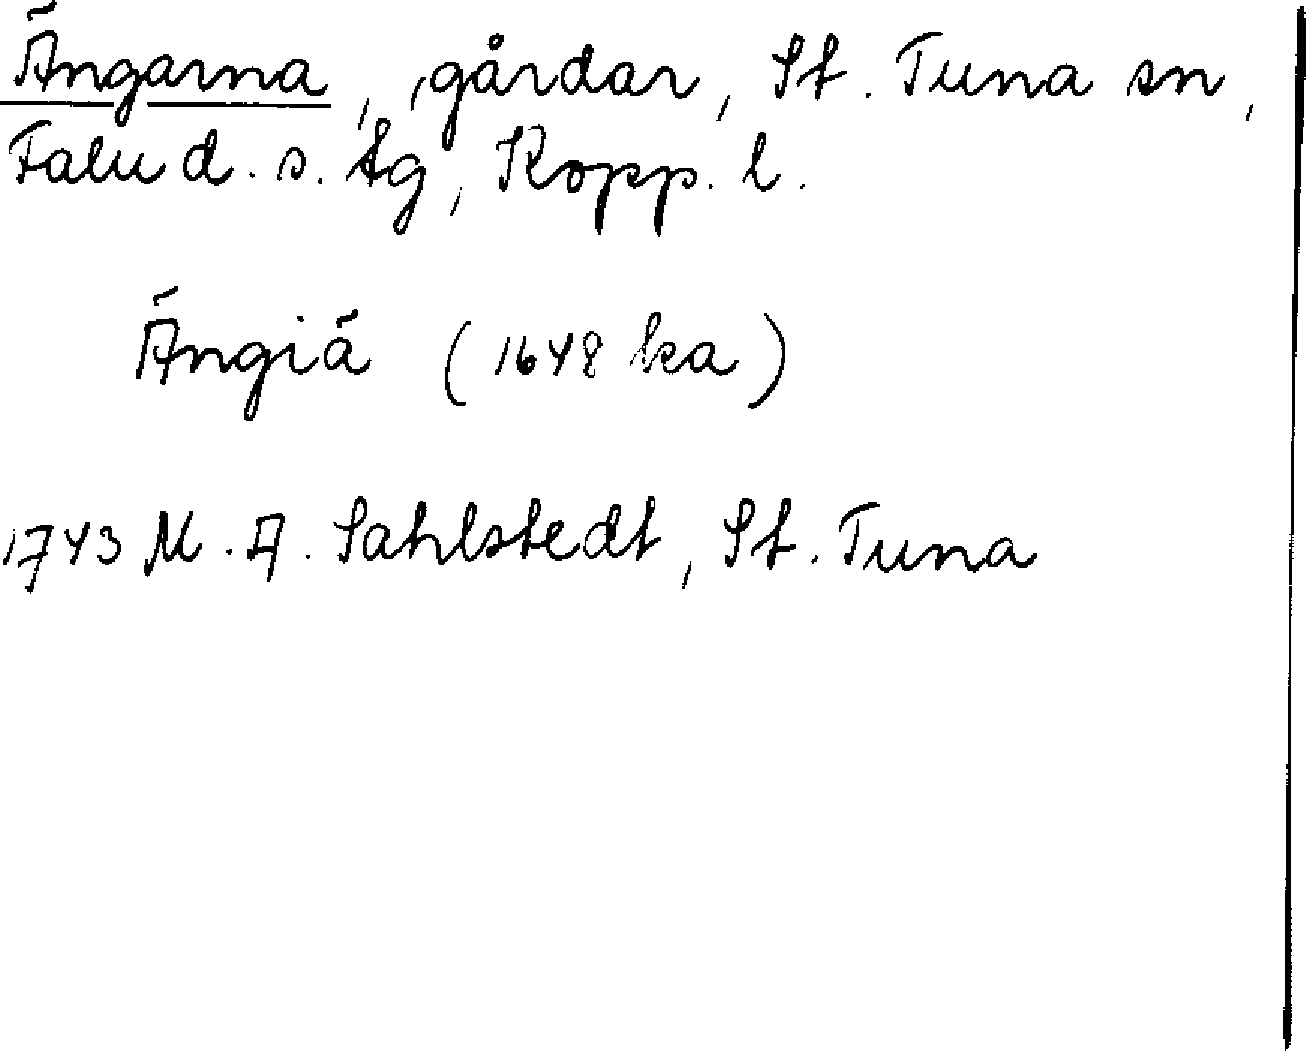 Ängarna, gårdar, St. Tuna sn,
Falu d. s. tg, Kopp. l.
Ängiä (1648 ka)
1743 M. A. Sahlstedt, St. Tuna